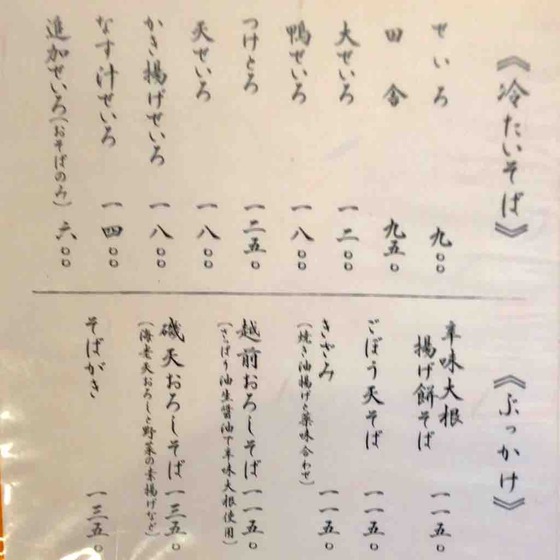 《冷たいそば》
せいろ 九〇〇
田舎 九五〇
大せいろ 一二〇〇
鴨せいろ 一八〇〇
つけとろ 一二五〇
天せいろ 一八〇〇
かき揚げせいろ 一八〇〇
なす汁せいろ 一四〇〇
追加せいろ(おそばのみ) 六〇〇
《ぶっかけ》
辛味大根
揚げ餅そば 一一五〇
ごぼう天そば 一一五〇
きざみ 一一五〇
(焼き油揚げと薬味合わせ)
越前おろしそば 一一五〇
(さらばり油生醤油で辛味大根使用)
磯天おろしそば 一三五〇
(海老天おろしと野菜の素揚げなど)
そばがき 一三五〇